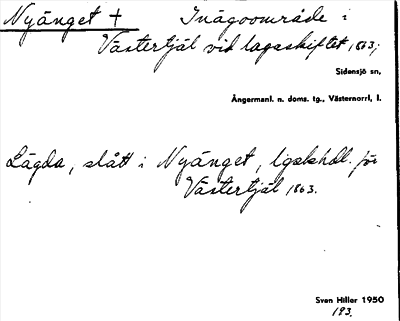 Nyänget + Inägoområde i
Västertjäl vid lagaskiftet 1863;
Sidensjö sn,
Ångermanl. n. doms. tg., Västernorrl. l.
Lägda, slått i Nyänget, lgskhdl. för
Västertjäl 1863.
Sven Hiller 1950
193.